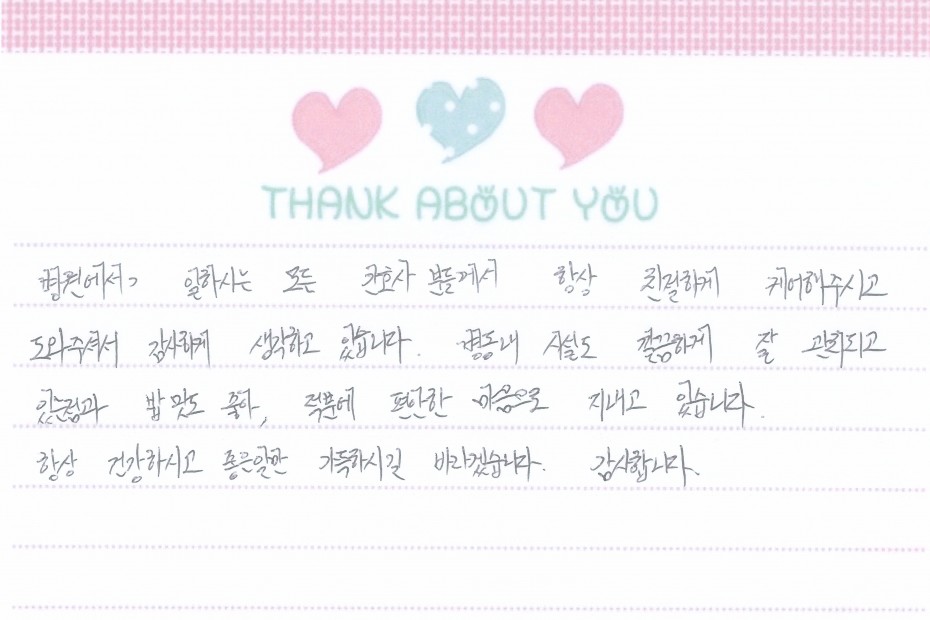 THANK ABOUT YOU
일하시는 모든 간호사 분들께서 항상 친절하게 케어해주시고
도와주셔서 감사하게 생각하고 있습니다. 병동내 시설도 깔끔하게 잘 관리되고
있는점과 밥 맛도 좋아, 덕분에 편안한 마음으로 지내고 있습니다.
항상 건강하시고 좋은일만 가득하시길 바라겠습니다. 감사합니다.